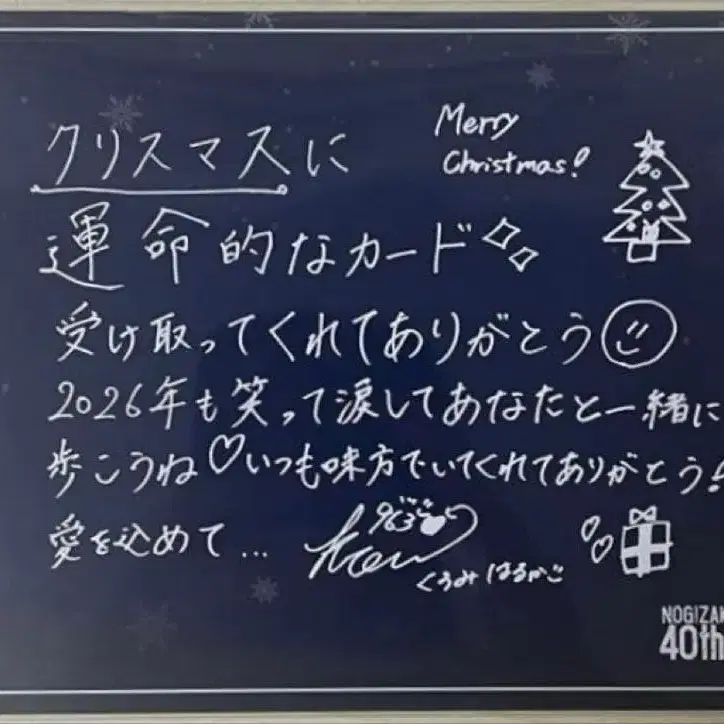 Merry
Christmas!
クリスマスに
運命的なカード
受け取ってくれてありがとう
2026年も笑って涙してあなたと一緒に
歩こうね♡いつも味方でいてくれてありがとう!
愛を込めて...
963
くろみはるか
NOGIZAK
40th